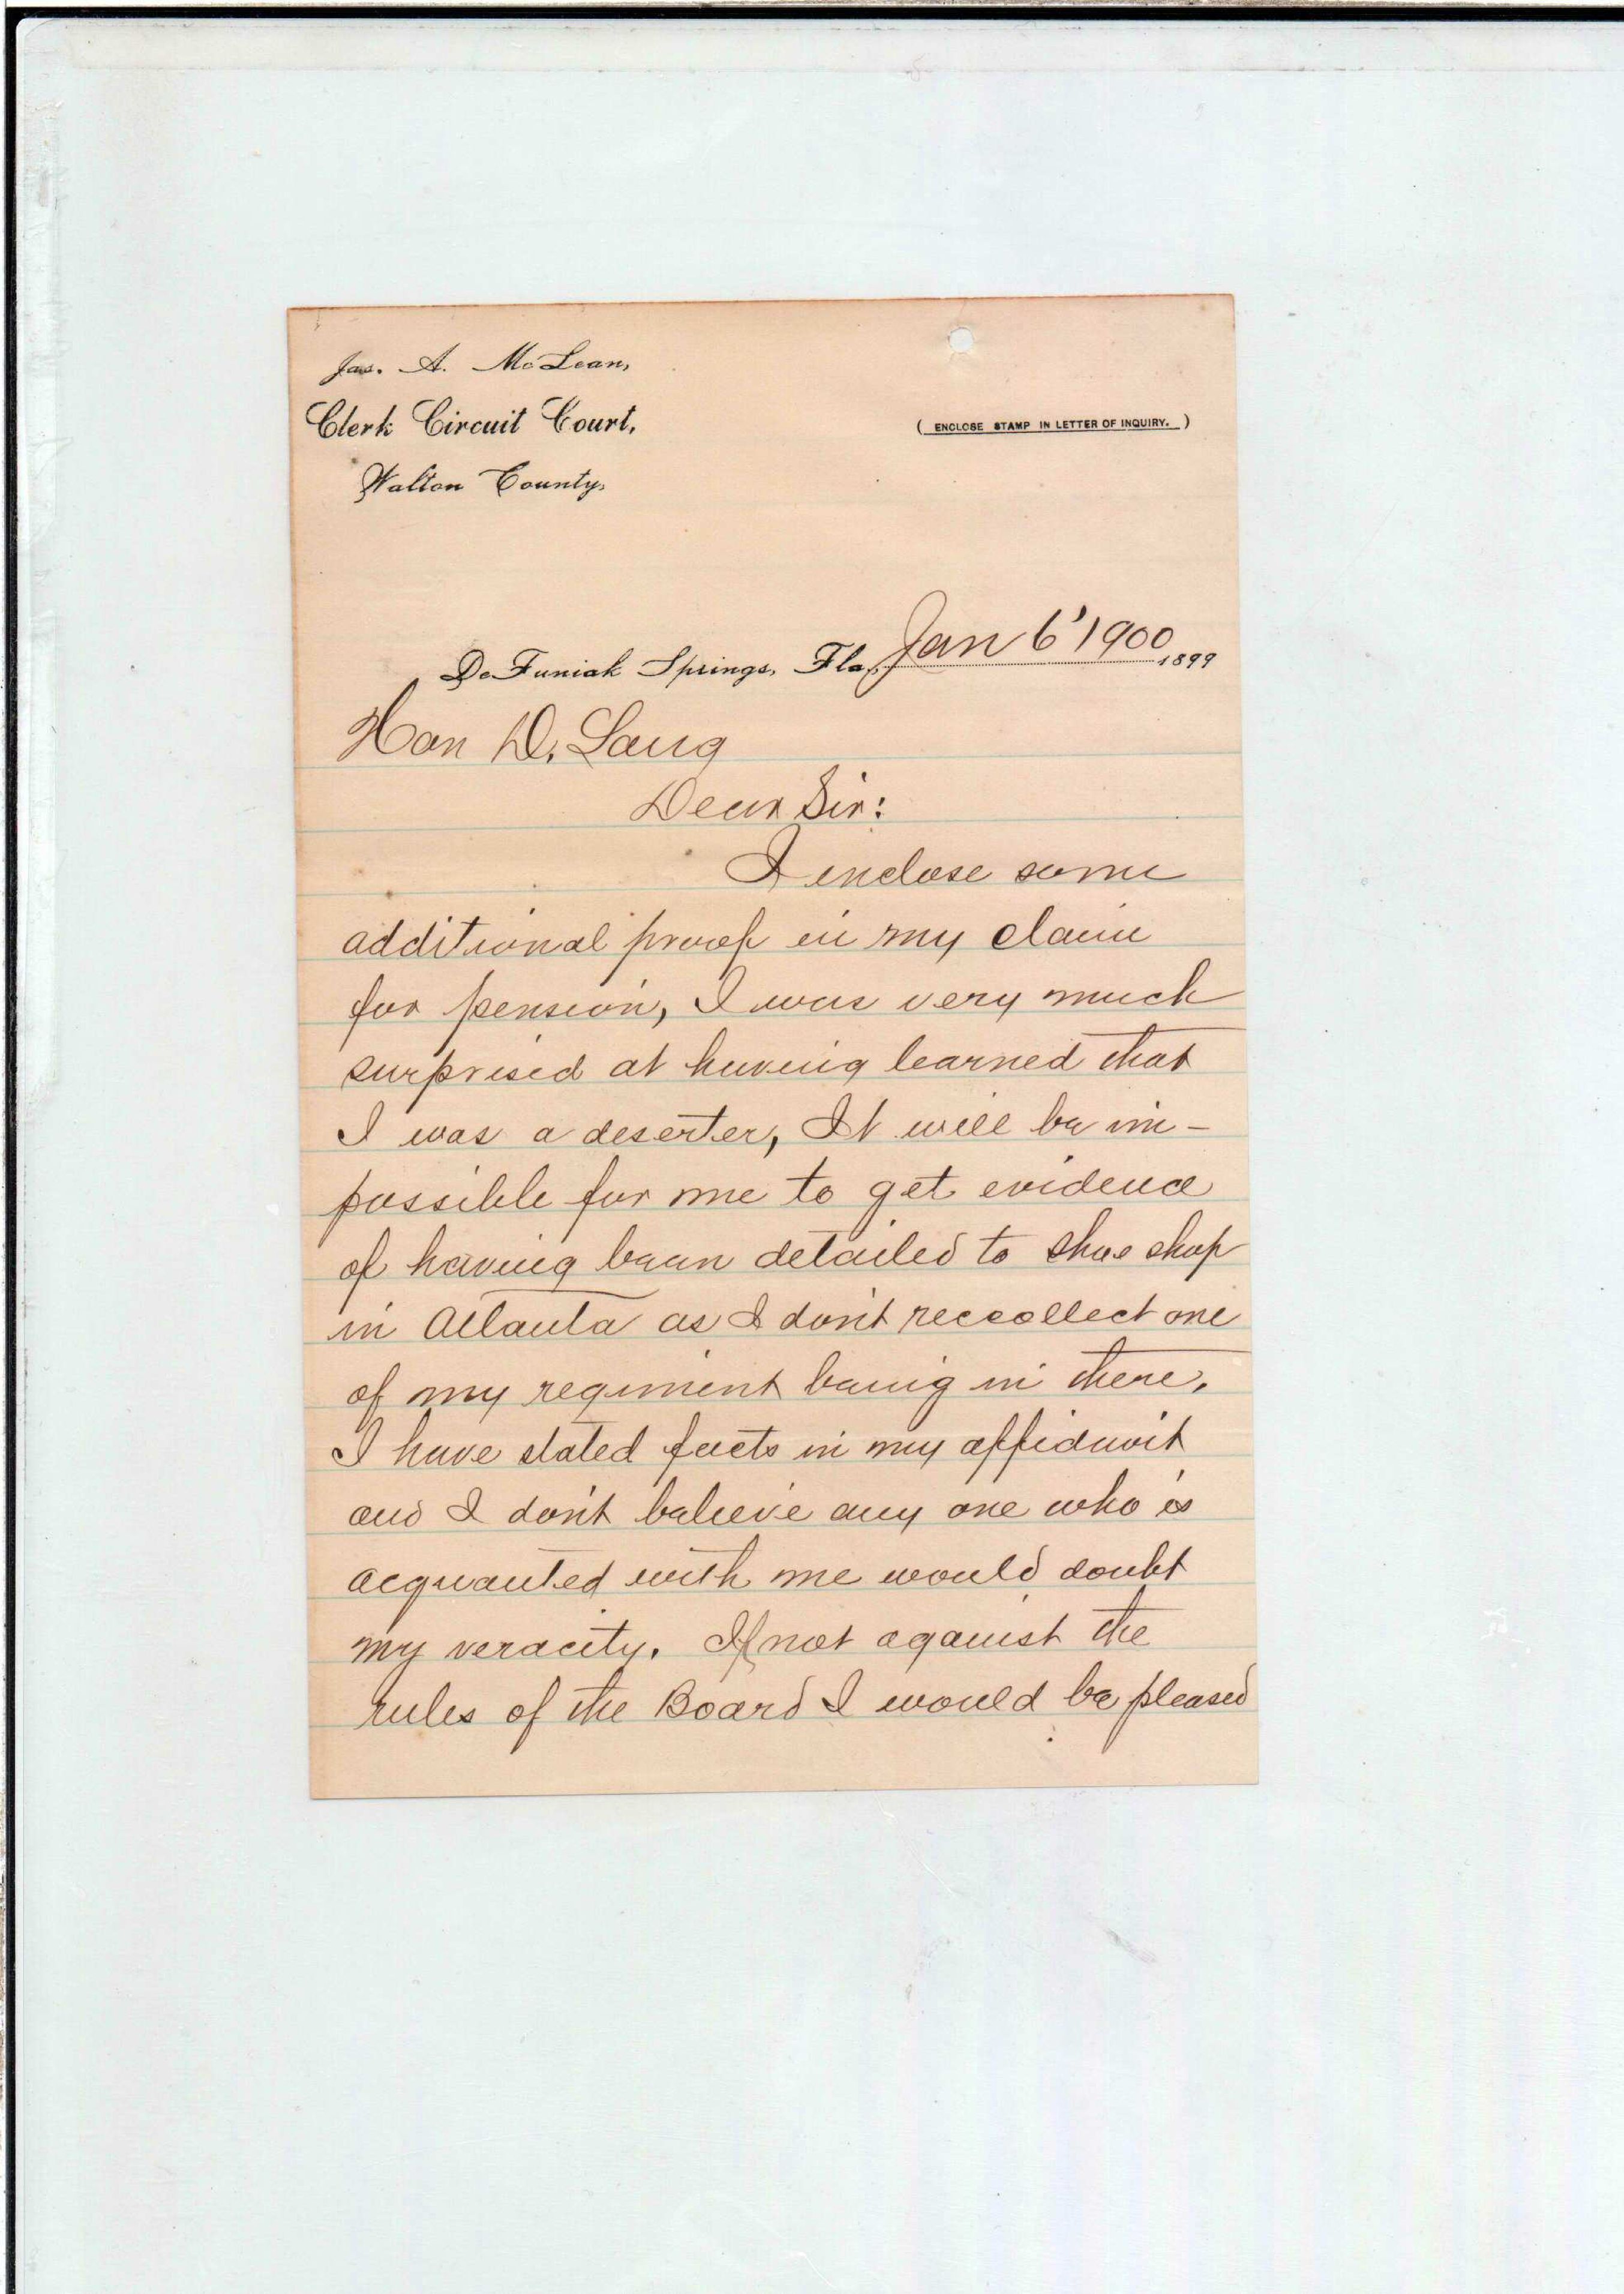 Jas. A. McLean,
Clerk Circuit Court,
(ENCLOSE STAMP IN LETTER OF INQUIRY.)
Walton County,
DeFuniak Springs, Fla., Jan 6' 1900 1899
Hon D. Lang
Dear Sir:
I enclose some
additional proof in my claim
for pension, I was very much
surprised at having learned that
I was a deserter, It will be im-
possible for me to get evidence
of having been detailed to shoe shop
in Atlanta as I don't reccollect one
of my regiment being in there.
I have stated facts in my affidavit
and I don't believe any one who is
acquanted with me would doubt
my veracity. If not against the
rules of the Board I would be pleased